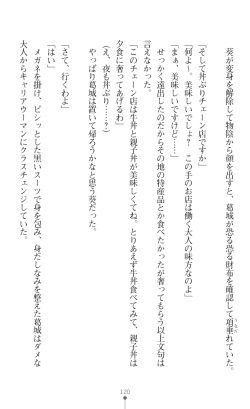 葵が変身を解除して物陰から顔を出すと、葛城が恐る恐る財布を確認して項垂れていた。
うなだ
「そして丼ぶりチェーン店ですか」
「何よー。美味しいでしょ？　この手のお店は働く大人の味方なのよ」
「まぁ、美味しいですけど……」
せっかく遠出したのだからその地の特産品とか食べたかったが奢ってもらう以上文句は
言えなかった。
「このチェーン店は牛丼と親子丼が美味しくてね。とりあえず牛丼食べてみて、親子丼は
夕食に奢ってあげるわ」
（え、夜も丼ぶり……？）
やっぱり葛城は置いて帰ろうかなと思う葵だった。
「さて、行くわよ」
「はい」
メガネを掛け、ビシッとした黒いスーツで身を包み、身だしなみを整えた葛城はダメな
大人からキャリアウーマンにクラスチェンジしていた。
120